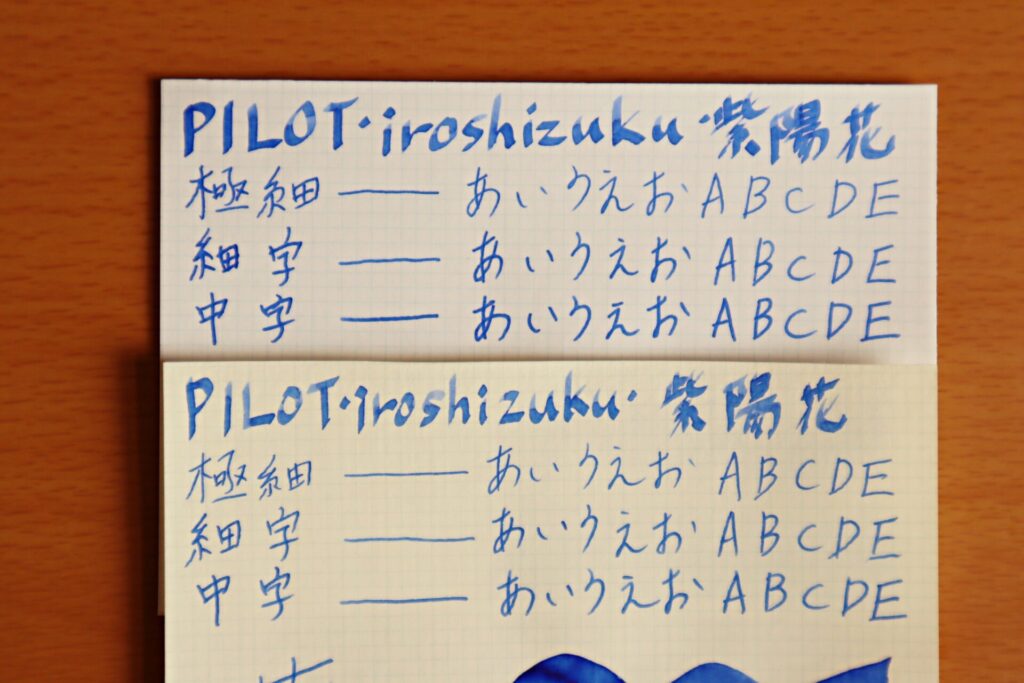 PILOT・iroshizuku・紫陽花
極細 ― あいうえお ABCDE
細字 ― あいうえお ABCDE
中字 ― あいうえお ABCDE
PILOT・iroshizuku・紫陽花
極細 ― あいうえお ABCDE
細字 ― あいうえお ABCDE
中字 ― あいうえお ABCDE